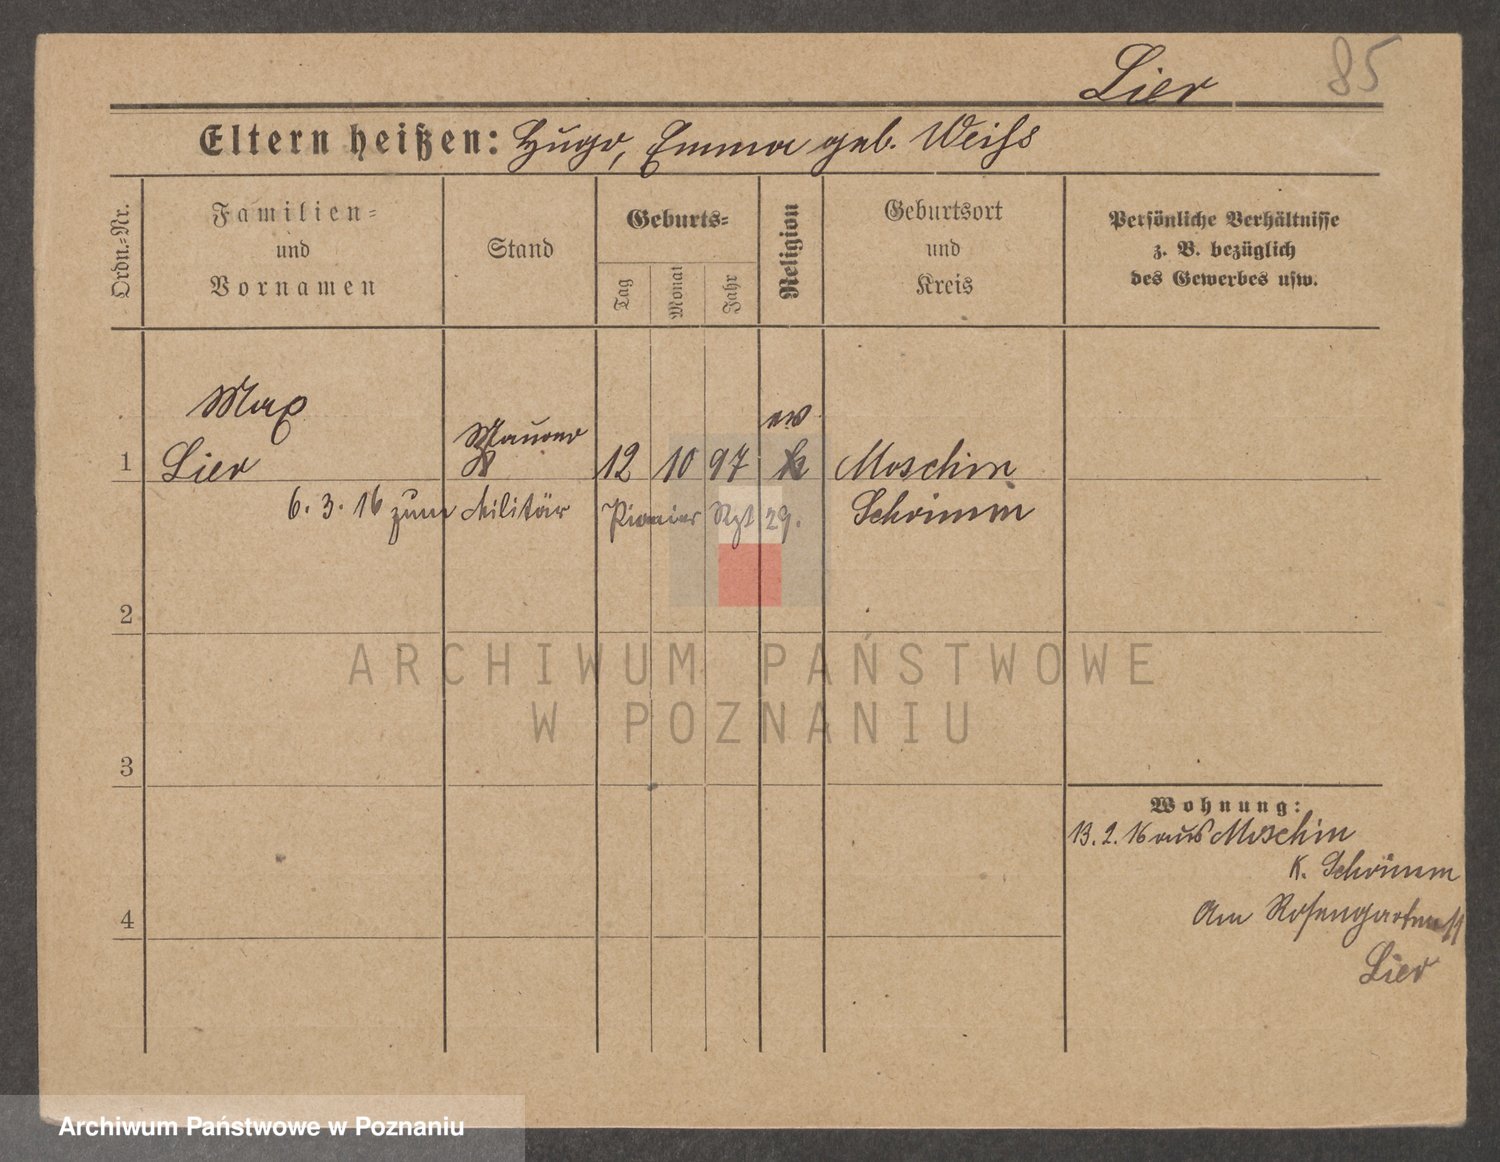 Lier 85
Eltern heißen: Hugo, Emma geb. Weiss
Ordn.-Nr.
Familien-
und
Vornamen
Stand
Geburts-
Tag
Monat
Jahr
Religion
Geburtsort
und
Kreis
Persönliche Verhältnisse
z. B. bezüglich
des Gewerbes usw.
Max
1 Lier Maurer 12 10 97 ev k Moschin
6. 3. 16 zum Militär Pionier Rgt 29. Schrimm
2
3
4
Wohnung:
13. 2. 16 aus Moschin
K. Schrimm
Am Rosengarten 11
Lier
ARCHIWUM PAŃSTWOWE
W POZNANIU
Archiwum Państwowe w Poznaniu